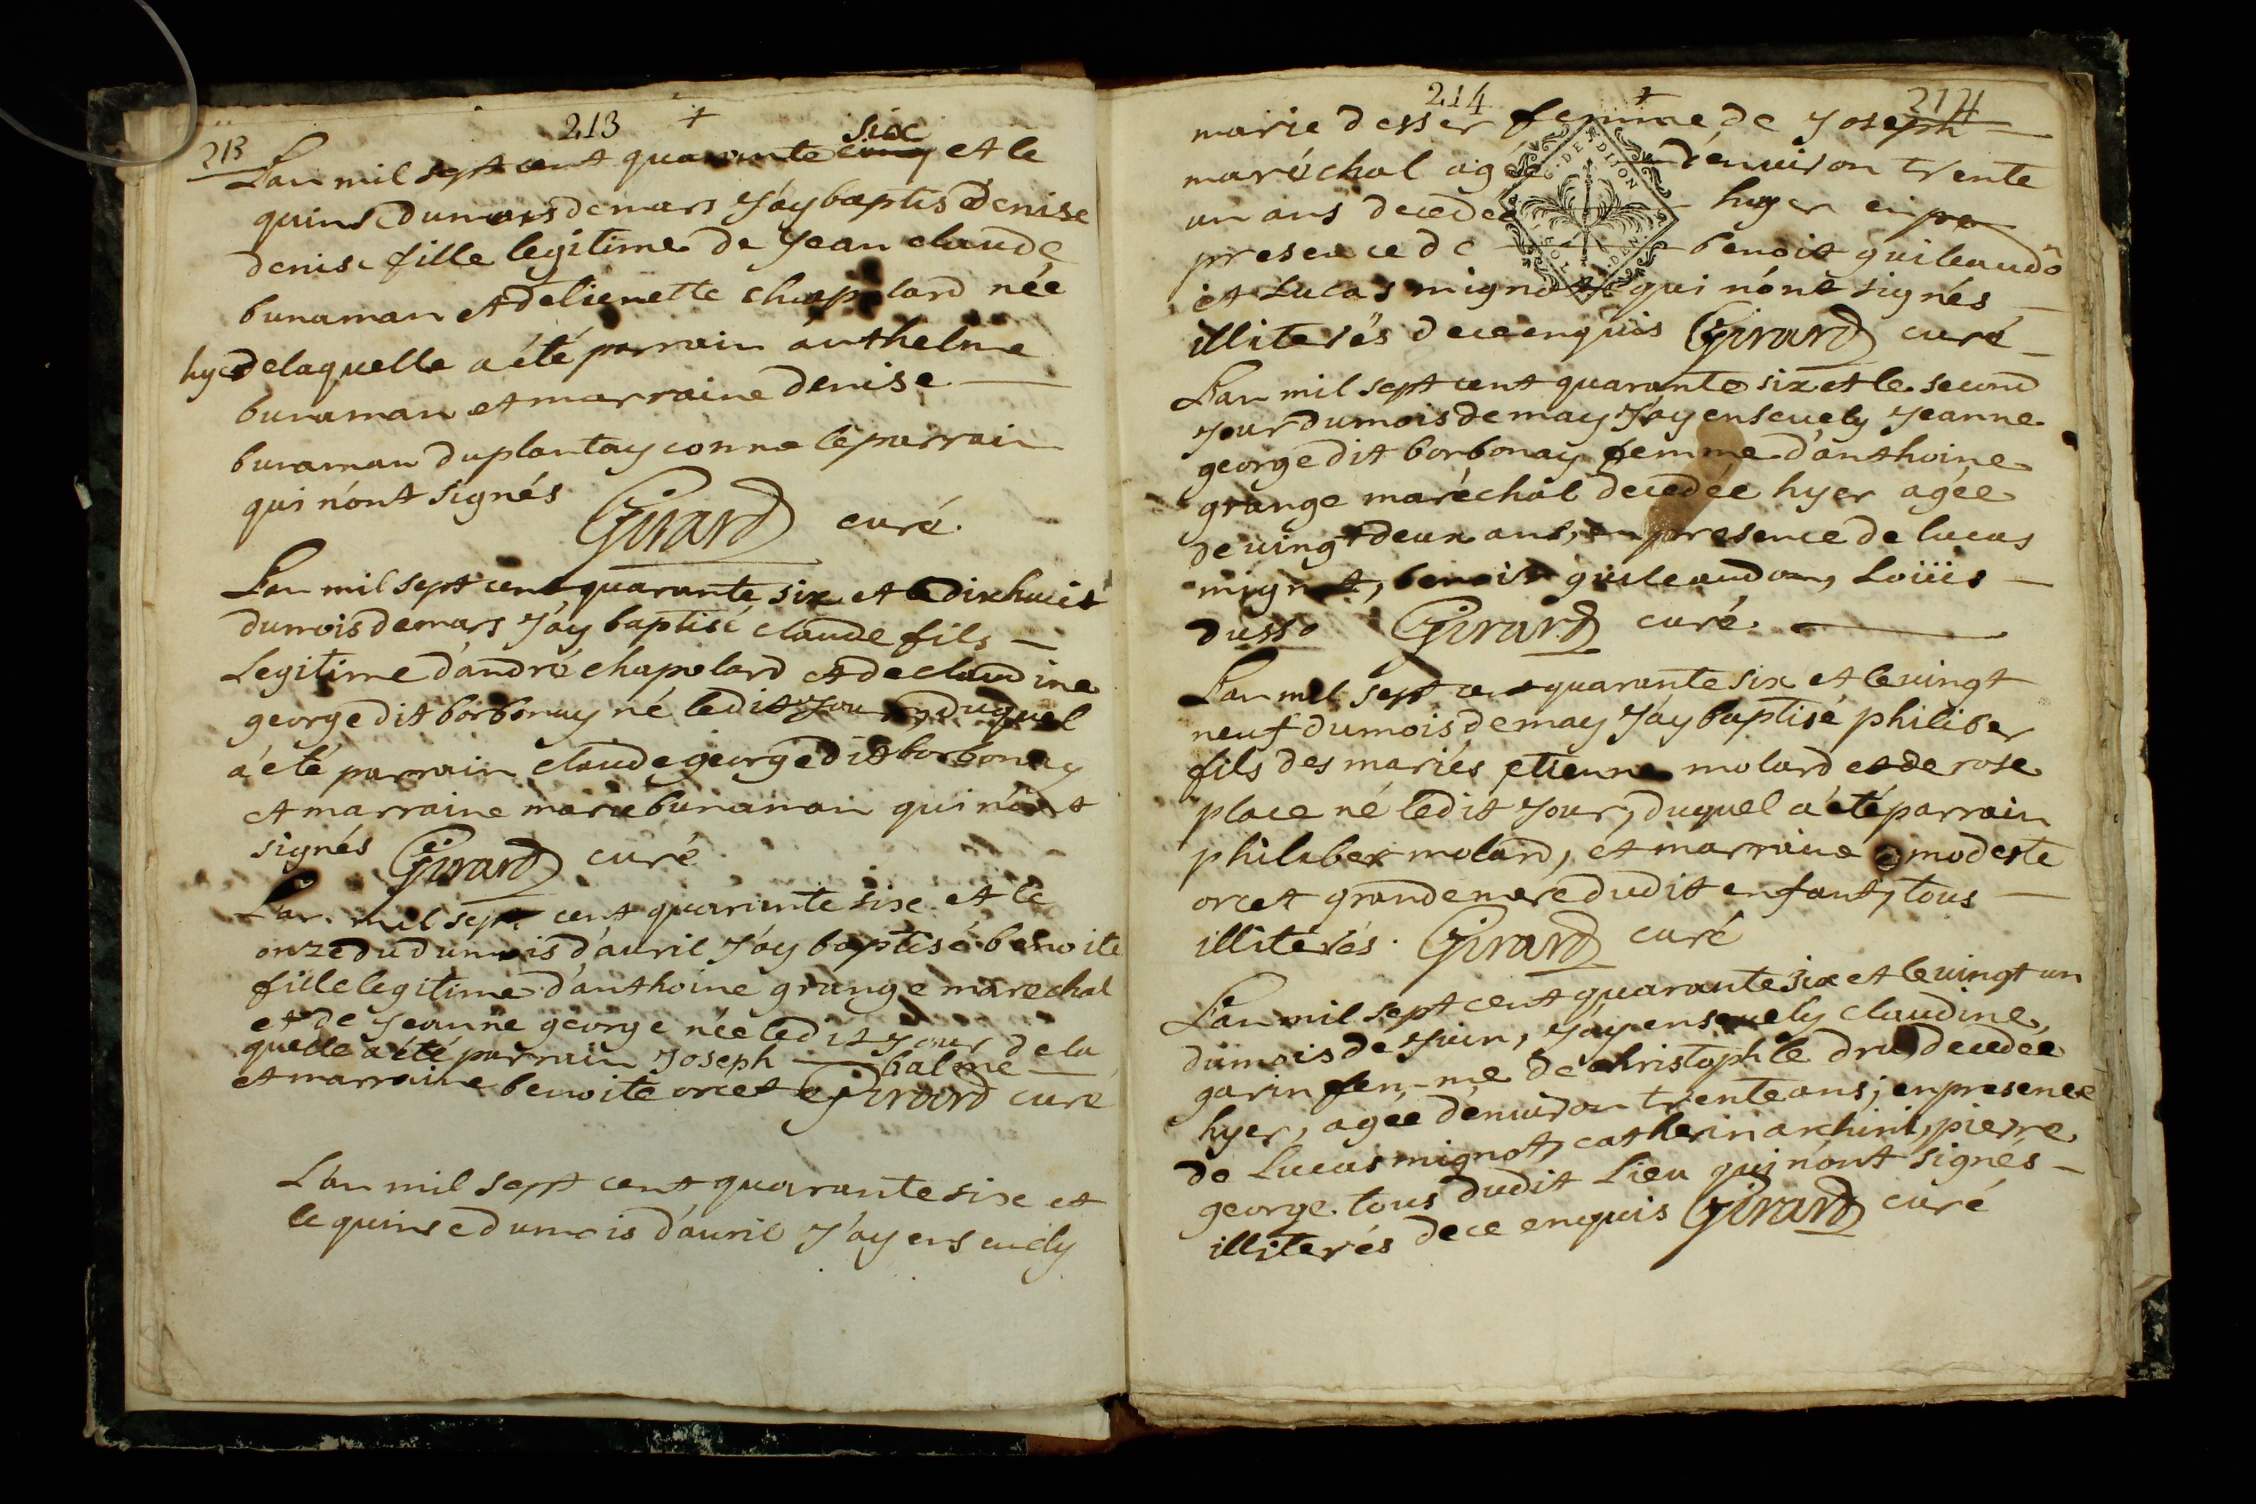 213 +
213
Lan mil sept cent quarante cinq six et le
quinse du mois de mars J'ay baptis Denise
denise fille legitime de Jean claude
bunaman et detienette chapelard née
hyer de laquelle a été parrain anthelme
bunaman et marraine denise
bunaman du plantay comme le parrain
qui n'ont signés Girard curé.
Lan mil sept cent quarante six et le dixhuit
du mois de mars J'ay baptisé claude fils
Legitime d'andré chapelard et de claudine
george dit borbonay né ledit Jour, duquel
a été parrain claude george dit borbonay
et marraine marie bunaman qui n'ont
signés Girard curé
Lan mil sept cent quarante six et le
onze du du mois d'auril J'ay baptisé benoite
fille legitime d'anthoine grange marechal
et de Jeanne george née ledit Jour de la
quelle a été parrain Joseph balme
et marraine benoite orcet Girard curé
Lan mil sept cent quarante six et
le quinse du mois d'auril J'ay enseuely
214 + 214
marie desser femme de Joseph
maréchal agée d'enuiron trente
un ans decedée hyer en pre
DE DIJON
presence de benoit guileaudo
et Lucas mignot qui n'ont signés
illiterés de ce enquis Girard curé
Lan mil sept cent quarante six et le second
Jour du mois de may J'ay enseuely Jeanne
george dit borbonay femme d'anthoine
grange maréchal decedée hyer agée
de uingt deux ans, en presence de lucas
mignot, benoit guileaudon, Loüis
dusso Girard curé.
Lan mil sept cent quarante six et le uingt
neuf du mois de may J'ay baptisé philiber
fils des mariés etienne molard et de rose
place né ledit Jour, duquel a été parrain
philiber molard, et marraine modeste
orcet grandemere dudit enfant, tous
illiterés. Girard curé
Lan mil sept cent quarante six et le uingt un
du mois de Juin, J'ay enseuely claudine
garin femme de christophle dru, decedée
hyer, agée d'enuiron trente ans; en presence
de Lucas mignot, catherin archini, pierre
george tous dudit Lieu qui n'ont signés
illiterés de ce enquis Girard curé